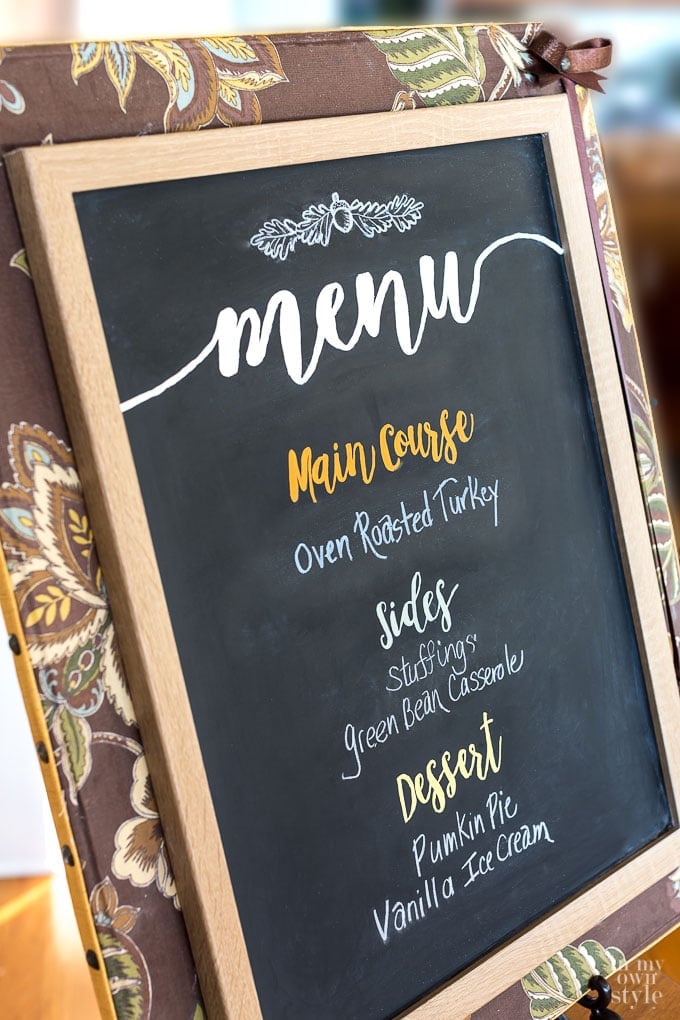 menu
Main Course
Oven Roasted Turkey
Sides
Stuffings
Green Bean Casserole
Dessert
Pumkin Pie
Vanilla Ice Cream
in my
own
style